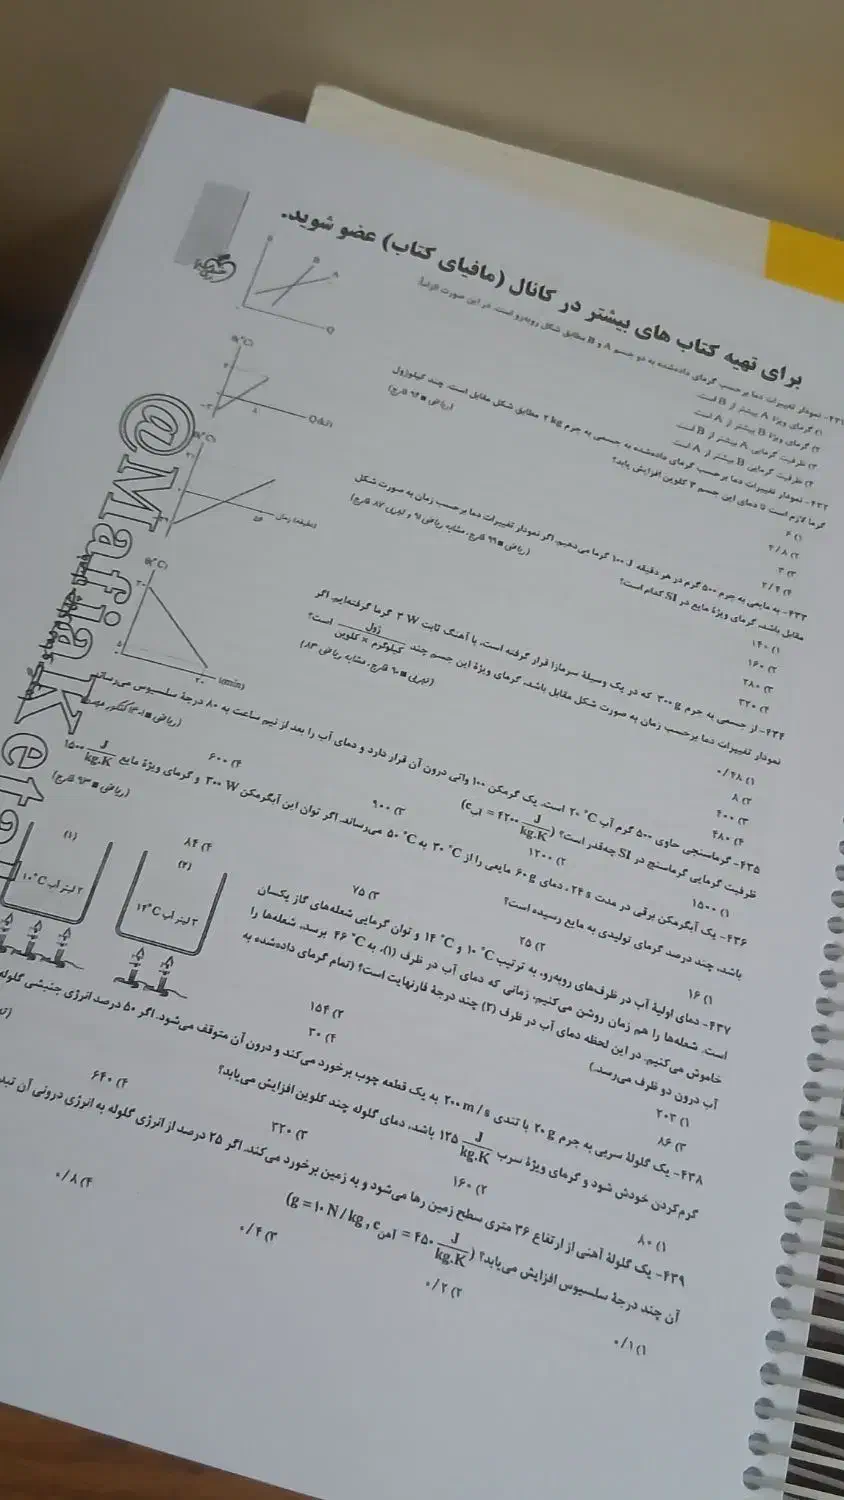 برای تهیه کتاب های بیشتر در کانال (مافیای کتاب) عضو شوید.
۴۳۱- نمودار تغییرات دما برحسب گرمای داده‌شده به دو جسم A و B مطابق شکل روبه‌رو است. در این صورت الزاماً:
۱) گرمای ویژهٔ A بیشتر از B است
۲) گرمای ویژهٔ B بیشتر از A است
۳) ظرفیت گرمایی A بیشتر از B است
۴) ظرفیت گرمایی B بیشتر از A است
B
A
Q
۴۳۲- نمودار تغییرات دما برحسب گرمای داده‌شده به جسمی به جرم ۲ kg مطابق شکل مقابل است. چند کیلوژول
گرما لازم است تا دمای این جسم ۳ کلوین افزایش یابد؟
۱) ۶
۲) ۴/۸
۳) ۳
۴) ۲/۴
θ(°C)
۸
Q(kJ)
۴۳۳- به مایعی به جرم ۵۰۰ گرم در هر دقیقه ۱۰۰ J گرما می‌دهیم. اگر نمودار تغییرات دما برحسب زمان به صورت شکل
مقابل باشد، گرمای ویژهٔ مایع در SI کدام است؟
۱) ۱۴۰
۲) ۱۶۰
۳) ۲۸۰
۴) ۳۲۰
θ(°C)
زمان (دقیقه)
۴۳۴- از جسمی به جرم ۳۰۰ g که در یک وسیلهٔ سرمازا قرار گرفته است، با آهنگ ثابت ۳ W گرما گرفته‌ایم. اگر
نمودار تغییرات دما برحسب زمان به صورت شکل مقابل باشد، گرمای ویژهٔ این جسم چند ژول / کیلوگرم × کلوین است؟
۱) ۰/۴۸
۲) ۸
۳) ۴۰۰
۴) ۴۸۰
θ(°C)
۲۰
۵
۲۰
t(min)
۴۳۵- گرماسنجی حاوی ۵۰۰ گرم آب ۲۰ °C است. یک گرمکن ۱۰۰ واتی درون آن قرار دارد و دمای آب را بعد از نیم ساعت به ۸۰ درجهٔ سلسیوس می‌رساند.
ظرفیت گرمایی گرماسنج در SI چه‌قدر است؟ (c آب = ۴۲۰۰ J/kg.K)
۱) ۱۵۰۰
۲) ۱۲۰۰
۳) ۹۰۰
۴) ۶۰۰
۴۳۶- یک آبگرمکن برقی در مدت ۲۴ s، دمای ۶۰ g مایعی را از ۳۰ °C به ۵۰ °C می‌رساند. اگر توان این آبگرمکن ۳۰۰ W و گرمای ویژهٔ مایع ۱۵۰۰ J/kg.K
باشد، چند درصد گرمای تولیدی به مایع رسیده است؟
۱) ۱۶
۲) ۲۵
۳) ۷۵
۴) ۸۴
۴۳۷- دمای اولیهٔ آب در ظرف‌های روبه‌رو، به ترتیب ۱۰ °C و ۱۴ °C و توان گرمایی شعله‌های گاز یکسان
است. شعله‌ها را هم زمان روشن می‌کنیم. زمانی که دمای آب در ظرف (۱)، به ۴۶ °C برسد، شعله‌ها را
خاموش می‌کنیم. در این لحظه دمای آب در ظرف (۲) چند درجهٔ فارنهایت است؟ (تمام گرمای داده‌شده به
آب درون دو ظرف می‌رسد.)
۱) ۲۰۳
۲) ۱۵۴
۳) ۸۶
۴) ۳۰
(۱)
۲ لیتر آب ۱۰°C
(۲)
۳ لیتر آب ۱۴°C
۴۳۸- یک گلولهٔ سربی به جرم ۲۰ g با تندی ۲۰۰ m/s به یک قطعه چوب برخورد می‌کند و درون آن متوقف می‌شود. اگر ۵۰ درصد انرژی جنبشی گلوله
گرم‌کردن خودش شود و گرمای ویژهٔ سرب ۱۲۵ J/kg.K باشد، دمای گلوله چند کلوین افزایش می‌یابد؟
۱) ۸۰
۲) ۱۶۰
۳) ۳۲۰
۴) ۶۴۰
۴۳۹- یک گلولهٔ آهنی از ارتفاع ۳۶ متری سطح زمین رها می‌شود و به زمین برخورد می‌کند. اگر ۲۵ درصد از انرژی گلوله به انرژی درونی آن
آن چند درجهٔ سلسیوس افزایش می‌یابد؟ (c آهن = ۴۵۰ J/kg.K , g = ۱۰ N/kg)
۱) ۰/۱
۲) ۰/۲
۳) ۰/۴
۴) ۰/۸
@MafiaKetab